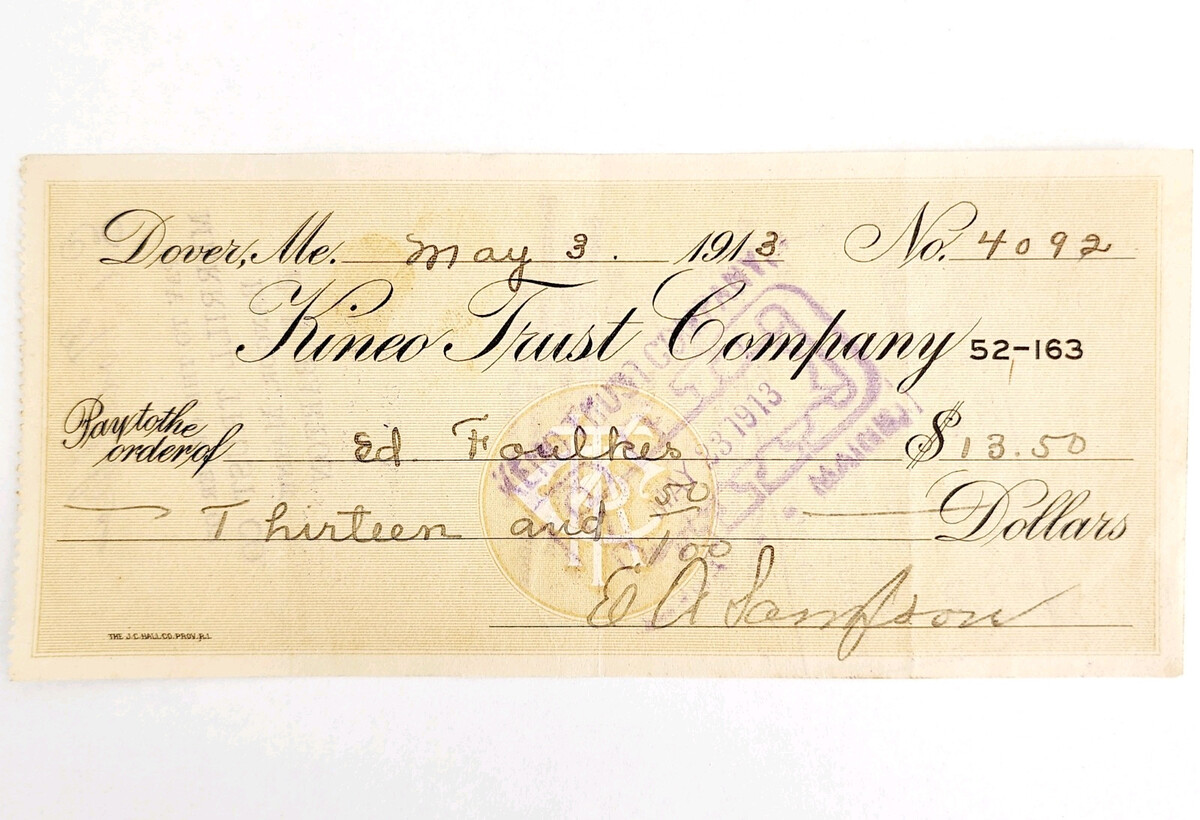 Dover, Me. May 3. 1913 No. 4092
Kineo Trust Company 52-163
Pay to the order of Ed Foulkes $13.50
Thirteen and 50/100 Dollars
E A Sampson
THE J.C. HALL CO. PROV. R.I.
KINEO TRUST COMPANY
3 1913
MAINE